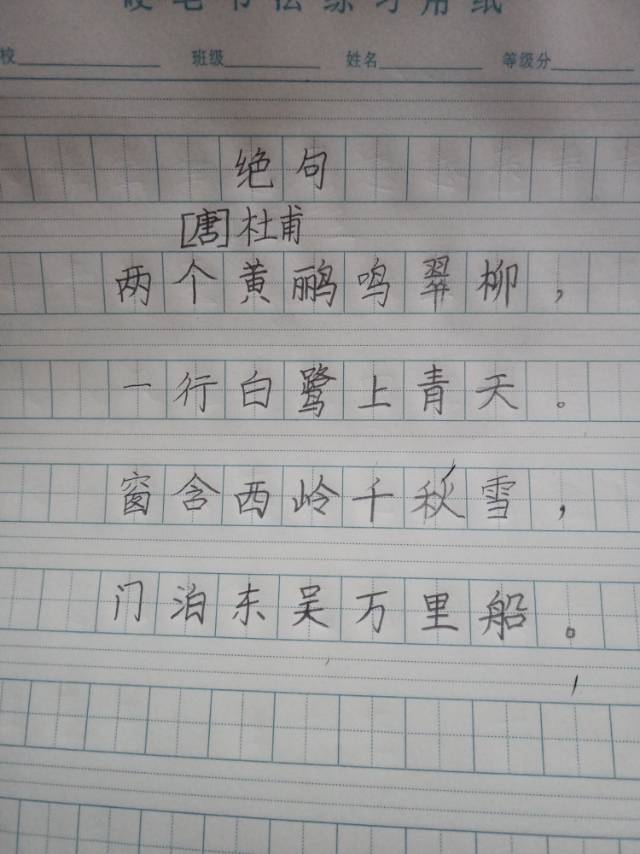 硬笔书法练习用纸
校 班级 姓名 等级分
绝句
[唐]杜甫
两个黄鹂鸣翠柳，
一行白鹭上青天。
窗含西岭千秋雪，
门泊东吴万里船。